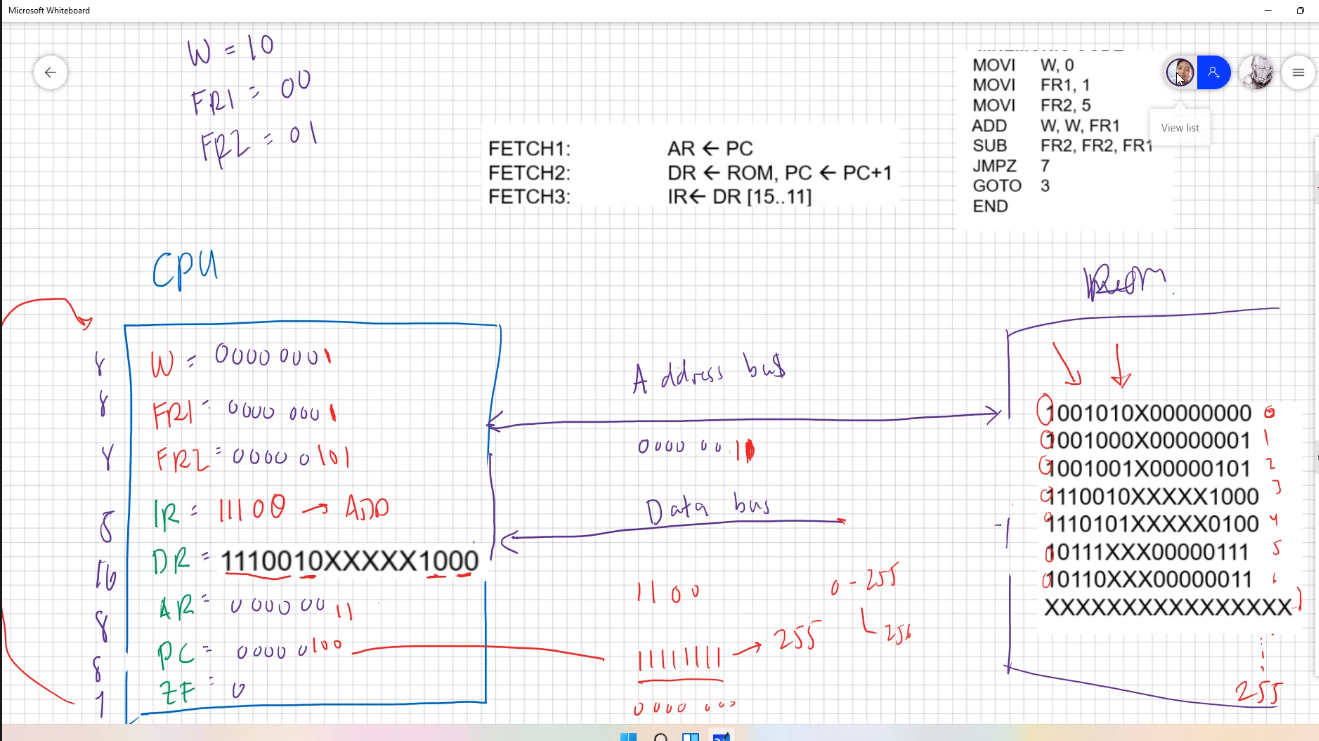 Microsoft Whiteboard
W = 10
FR1 = 00
FR2 = 01
FETCH1: AR ← PC
FETCH2: DR ← ROM, PC ← PC+1
FETCH3: IR← DR [15..11]
MOVI W, 0
MOVI FR1, 1
MOVI FR2, 5
ADD W, W, FR1
SUB FR2, FR2, FR1
JMPZ 7
GOTO 3
END
View list
CPU
8 W = 0000 0001
8 FR1 = 0000 0001
8 FR2 = 0000 0101
5 IR = 11100 → ADD
16 DR = 1110010XXXXX1000
8 AR = 000000 11
8 PC = 0000 0100
1 ZF = 0
Address bus
0000 0011
Data bus
1100
0 - 255
256
11111111 → 255
0000 000
1001010X00000000 0
1001000X00000001 1
1001001X00000101 2
1110010XXXXX1000 3
1110101XXXXX0100 4
10111XXX00000111 5
10110XXX00000011 6
XXXXXXXXXXXXXXXX
255